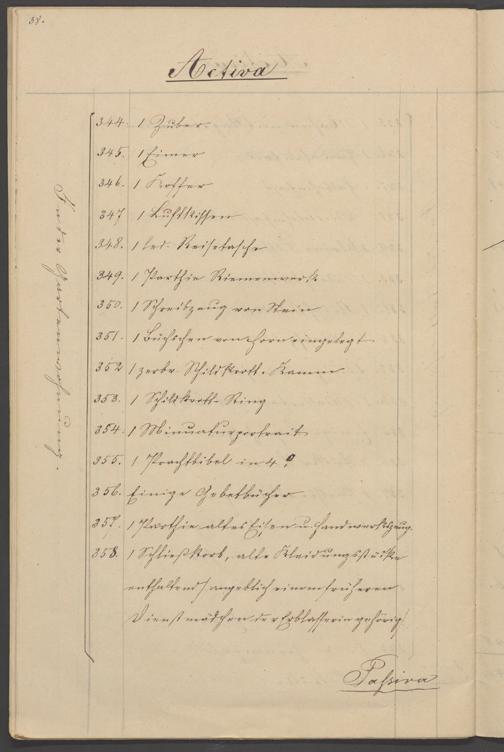 38.
Activa
In der Gartenwohnung.
344. 1 Zuber
345. 1 Eimer
346. 1 Koffer
347 1 Luftkissen
348. 1 led. Reisetasche
349. 1 Parthie Riemenwerk
350. 1 Schreibzeug von Stein
351. 1 Büchschen von Horn eingelegt
352 1 zerbr. Schildkrott-Kamm
353. 1 Schildkrott-Ring
354. 1 Minuaturportrait
355. 1 Prachtbibel in 4º
356. Einige Gebetbücher
357. 1 Parthie altes Eisen u. Handwerkzeug
358. 1 Schließkorb, alte Kleidungsstücke
enthaltend / angeblich einem früheren
Dienstmädchen der Erblasserin gehörig /
Passiva